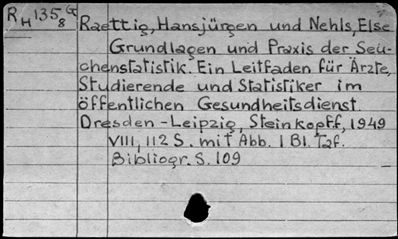 RH 135 8 G
Raettig, Hansjürgen und Nehls, Else
Grundlagen und Praxis der Seu-
chenstatistik. Ein Leitfaden für Ärzte,
Studierende und Statistiker im
öffentlichen Gesundheitsdienst.
Dresden-Leipzig, Steinkopff, 1949
VIII, 112 S. mit Abb. 1 Bl. Taf.
Bibliogr. S. 109